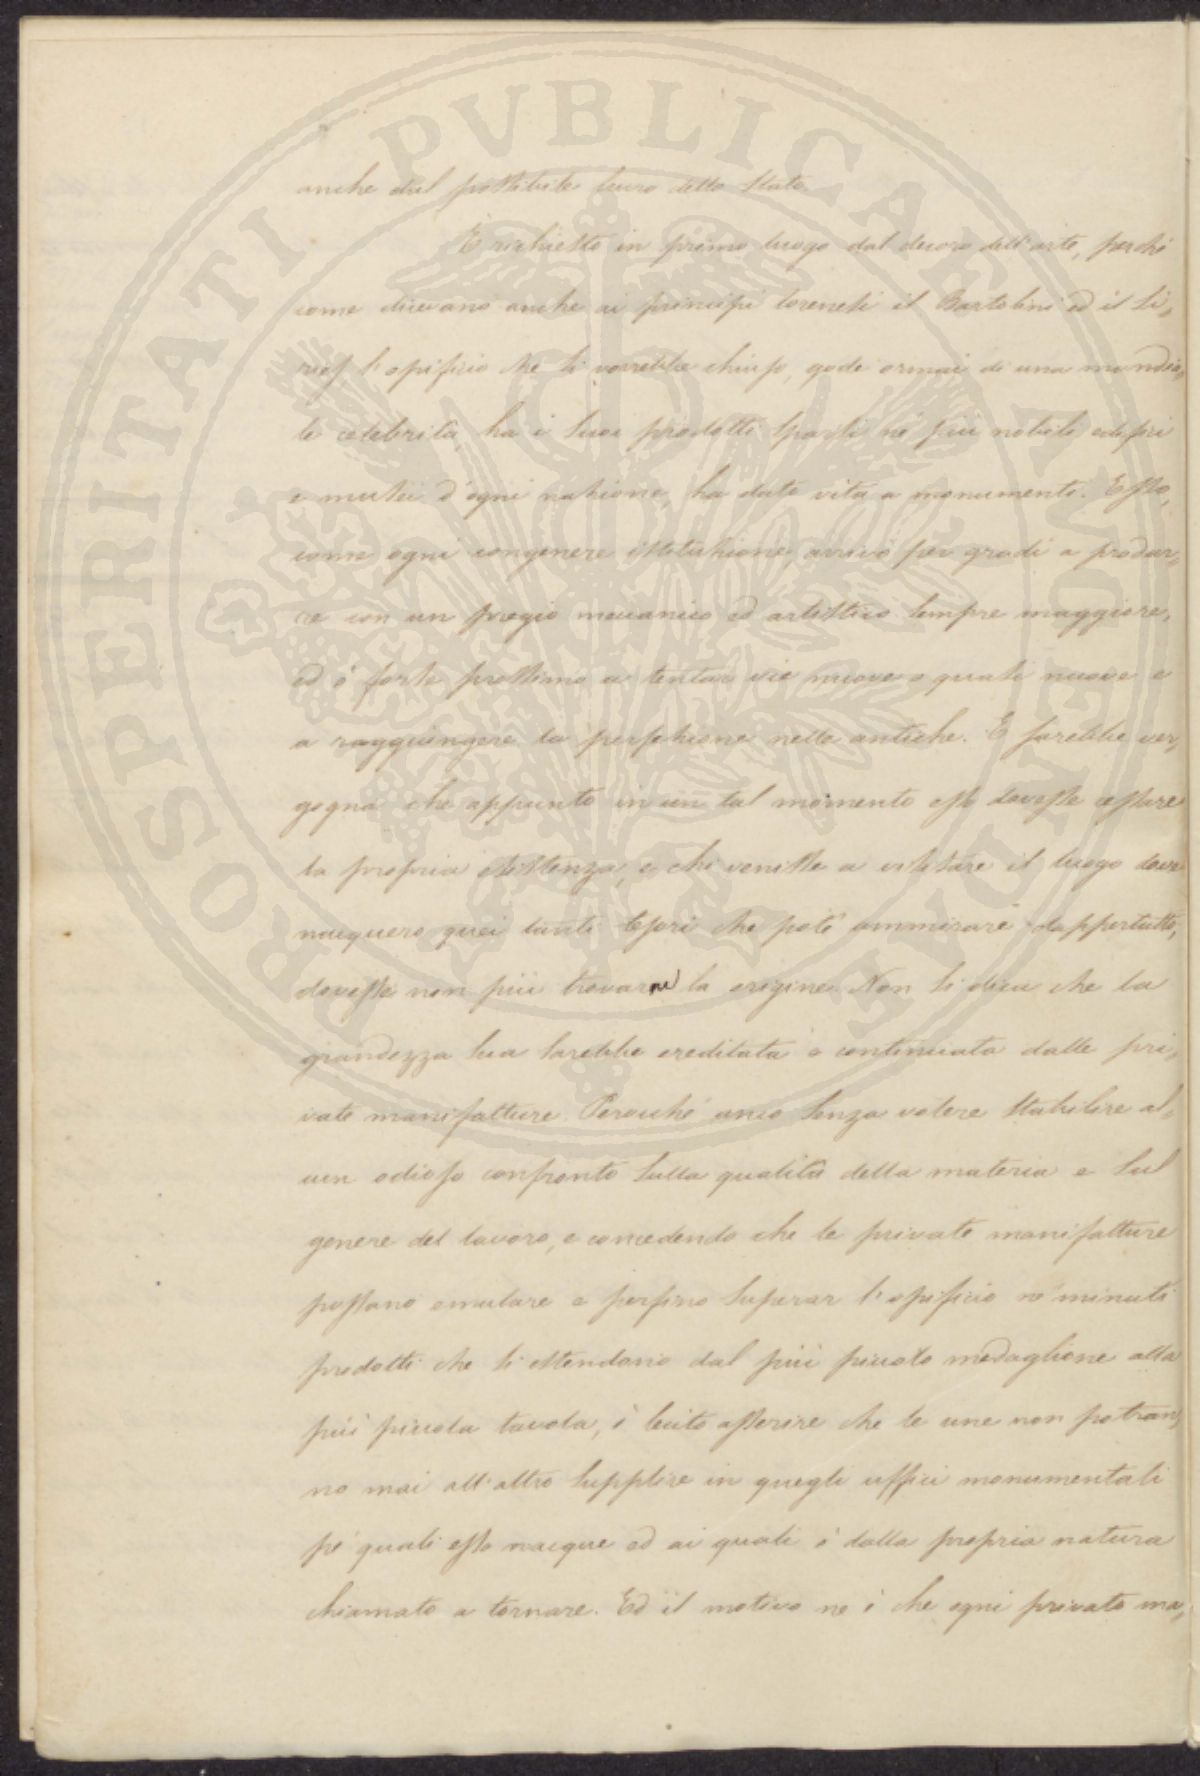 PROSPERITATI PVBLICAE AVGENDAE
anche dal possibile lucro dello Stato.
È richiesto in primo luogo dal decoro dell'arte, perché
come dicevano anche ai principi lorenesi il Bartolini ed il Si,
riès l'opificio che si vorrebbe chiuso, gode ormai di una mondia,
le celebrità, ha i suoi prodotti sparsi ne' più nobili edifizi
e musei d'ogni nazione, ha dato vita a monumenti. Esso,
come ogni congenere istituzione, arrivò per gradi a produr,
re con un pregio meccanico ed artistico sempre maggiore,
ed è forse prossimo a tentar vie nuove o quasi nuove e
a raggiungere la perfezione nelle antiche. E sarebbe ver,
gogna che appunto in un tal momento esso dovesse cessare
la propria esistenza, e chi venisse a visitare il luogo dove
nacquero quei tanti tesori che poté ammirare dappertutto,
dovesse non più trovarne la origine. Non si dica che la
grandezza sua sarebbe ereditata e continuata dalle pri,
vate manifatture. Perocché anco senza volere stabilire al,
cun odioso confronto sulla qualità della materia e sul
genere del lavoro, e concedendo che le private manifatture
possano emulare e perfino superar l'opificio ne' minuti
prodotti che si estendono dal più piccolo medaglione alla
più piccola tavola, è lecito asserire che le une non potran,
no mai all'altro supplire in quegli uffici monumentali
pe' quali esso nacque ed ai quali è dalla propria natura
chiamato a tornare. Ed il motivo ne è che ogni privata ma,